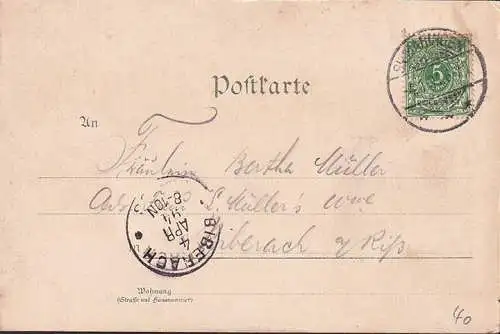 Postkarte
5
An
Fräulein Bertha Müller
Ads. L. Müller's Wwe
Biberach a/Riß
BIBERACH
4 APR
8-10N
Wohnung
(Straße und Hausnummer)
40